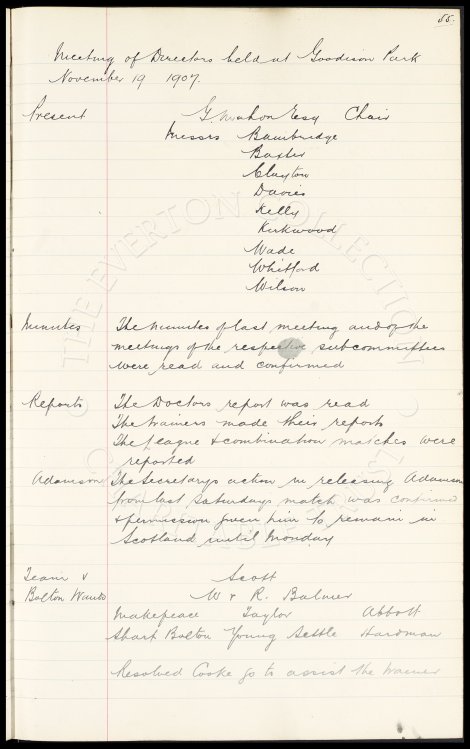 55.
Meeting of Directors held at Goodison Park
November 19 1907.
Present G. Mahon Esq Chair
Messrs Bainbridge
Baxter
Clayton
Davies
Kelly
Kirkwood
Wade
Whitford
Wilson
Minutes The minutes of last meeting and of the
meetings of the respective subcommittees
were read and confirmed
Reports The Doctors report was read
The trainers made their reports
The League & combination matches were
reported
Adamson The Secretarys action in releasing Adamson
from last Saturdays match was confirmed
& permission given him to remain in
Scotland until Monday
Team v Scott
Bolton Wands W & R. Balmer
Makepeace Taylor Abbott
Sharp Bolton Young Settle Hardman
Resolved Cooke go to assist the trainer
© THE EVERTON COLLECTION ©